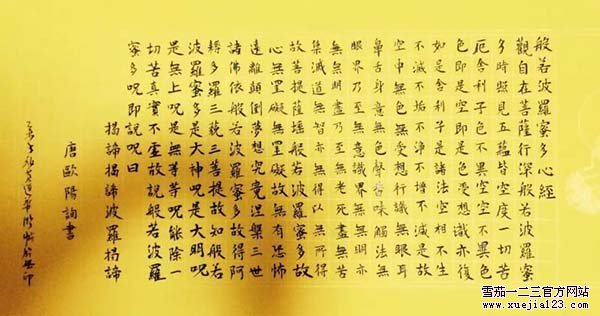 般若波羅蜜多心經
觀自在菩薩行深般若波羅蜜
多時照見五蘊皆空度一切苦
厄舍利子色不異空空不異色
色即是空即是色受想識亦復
如是舍利子是諸法空相不生
不滅不垢不淨不增不減是故
空中無色無受想行識無眼耳
鼻舌身意無色聲香味觸法無
眼界乃至無意識界無無明亦
無無明盡乃至無老死盡無苦
集滅道無智亦無得以無所得
故菩提薩埵般若波羅蜜多故
心無罣礙無罣礙故無有恐怖
遠離顛倒夢想究竟涅槃三世
諸佛依般若波羅蜜多故得阿
耨多羅三藐三菩提故知般若
波羅蜜多是大神呪是大明呪
是無上呪是無等等呪能除一
切苦真實不虛故說般若波羅
蜜多呪即說呪曰
揭諦揭諦波羅揭諦
唐歐陽詢書
雪茄一二三官方网站
www.xuejia123.com